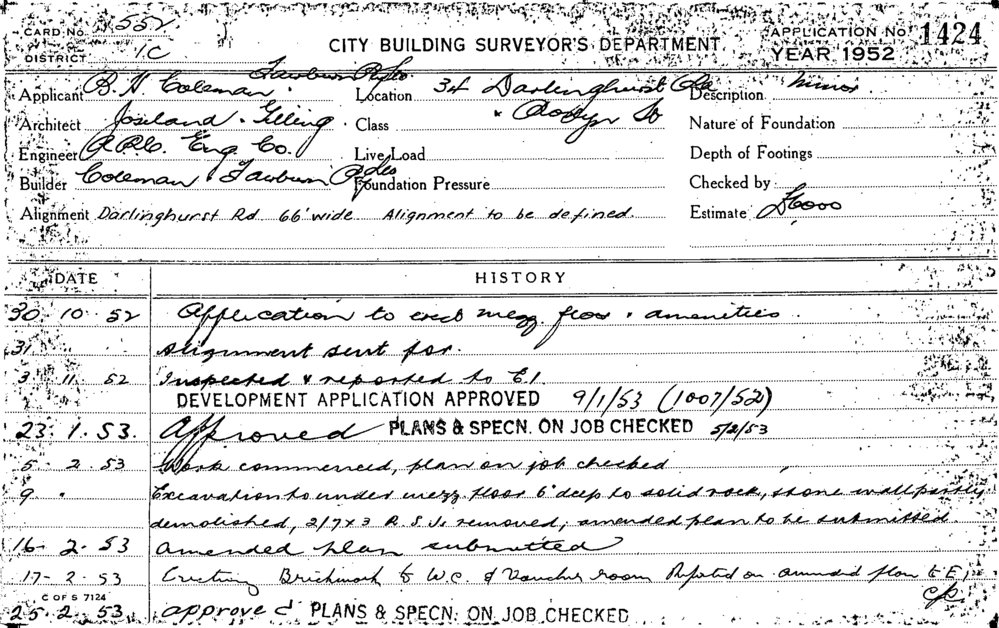 CARD No. 552
DISTRICT 1C
CITY BUILDING SURVEYOR'S DEPARTMENT
APPLICATION No. 1424
YEAR 1952
Applicant B. H. Coleman.
Location 34 Darlinghurst Rd
Description Minor.
Architect Joseland & Gilling.
Class & Roslyn St
Nature of Foundation
Engineer Eng. Co.
Live Load
Depth of Footings
Builder Coleman &
Foundation Pressure
Checked by
Alignment Darlinghurst Rd 66' wide Alignment to be defined.
Estimate £6000
DATE HISTORY
30. 10. 52 Application to erect mezz. floor & amenities.
31 Alignment sent for.
3 11 52 Inspected & reported to E.1.
DEVELOPMENT APPLICATION APPROVED 9/1/53 (1007/52)
23. 1. 53. Approved PLANS & SPECN. ON JOB CHECKED 5/2/53
5. 2. 53 Work commenced, plan on job checked
9 " Excavation to under mezz. floor 6' deep to solid rock, stone wall partly
demolished, 2/7 x 3 R.S.Js removed, amended plan to be submitted.
16. 2. 53 Amended plan submitted
17- 2. 53 Erecting Brickwork to W.C. & room Reported on amended plan to E1
C OF S 7124
25. 2. 53. approved PLANS & SPECN. ON JOB CHECKED